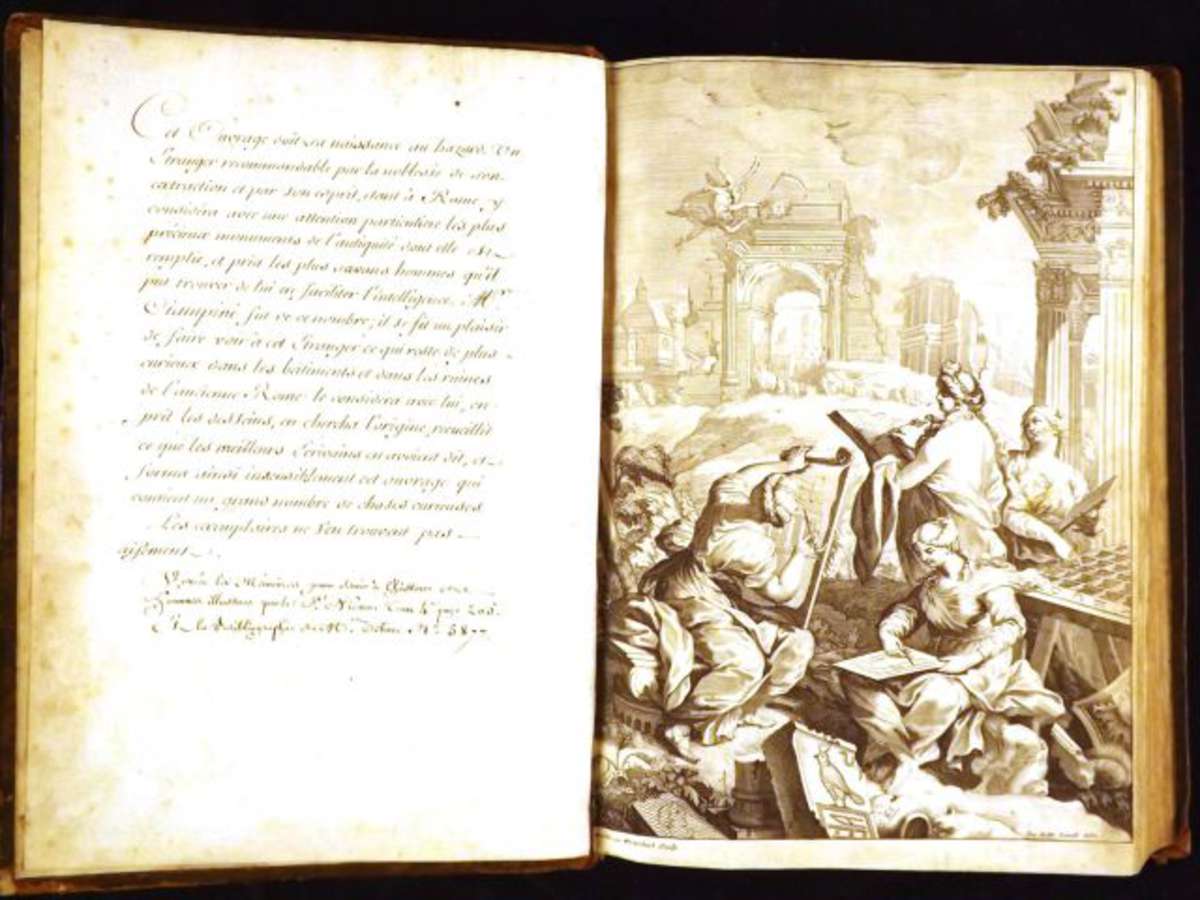 Cet Ouvrage doit sa naissance au hazard. Un
Etranger recommandable par la noblesse de son
extraction et par son esprit, étant à Rome, y
considéra avec une attention particuliere les plus
précieux monuments de l'antiquité dont elle est
remplie, et pria les plus savans hommes qu'il
put trouver de lui en faciliter l'intelligence. Mr.
Ciampini fut de ce nombre; il se fit un plaisir
de faire voir à cet Etranger ce qui reste de plus
curieux dans les bâtiments et dans les ruines
de l'ancienne Rome le considéra avec lui, en
prit les desseins, en chercha l'origine, recueillit
ce que les meilleurs Ecrivains en avoient dit, et
forma ainsi insensiblement cet ouvrage qui
contient un grand nombre de choses curieuses
Les exemplaires ne s'en trouvent pas
aisément
les Mémoires pour servir à l'histoire des
hommes illustres par le P. Niceron Tom 4e page 203.
la Bibliographie de Mr.
sculp.